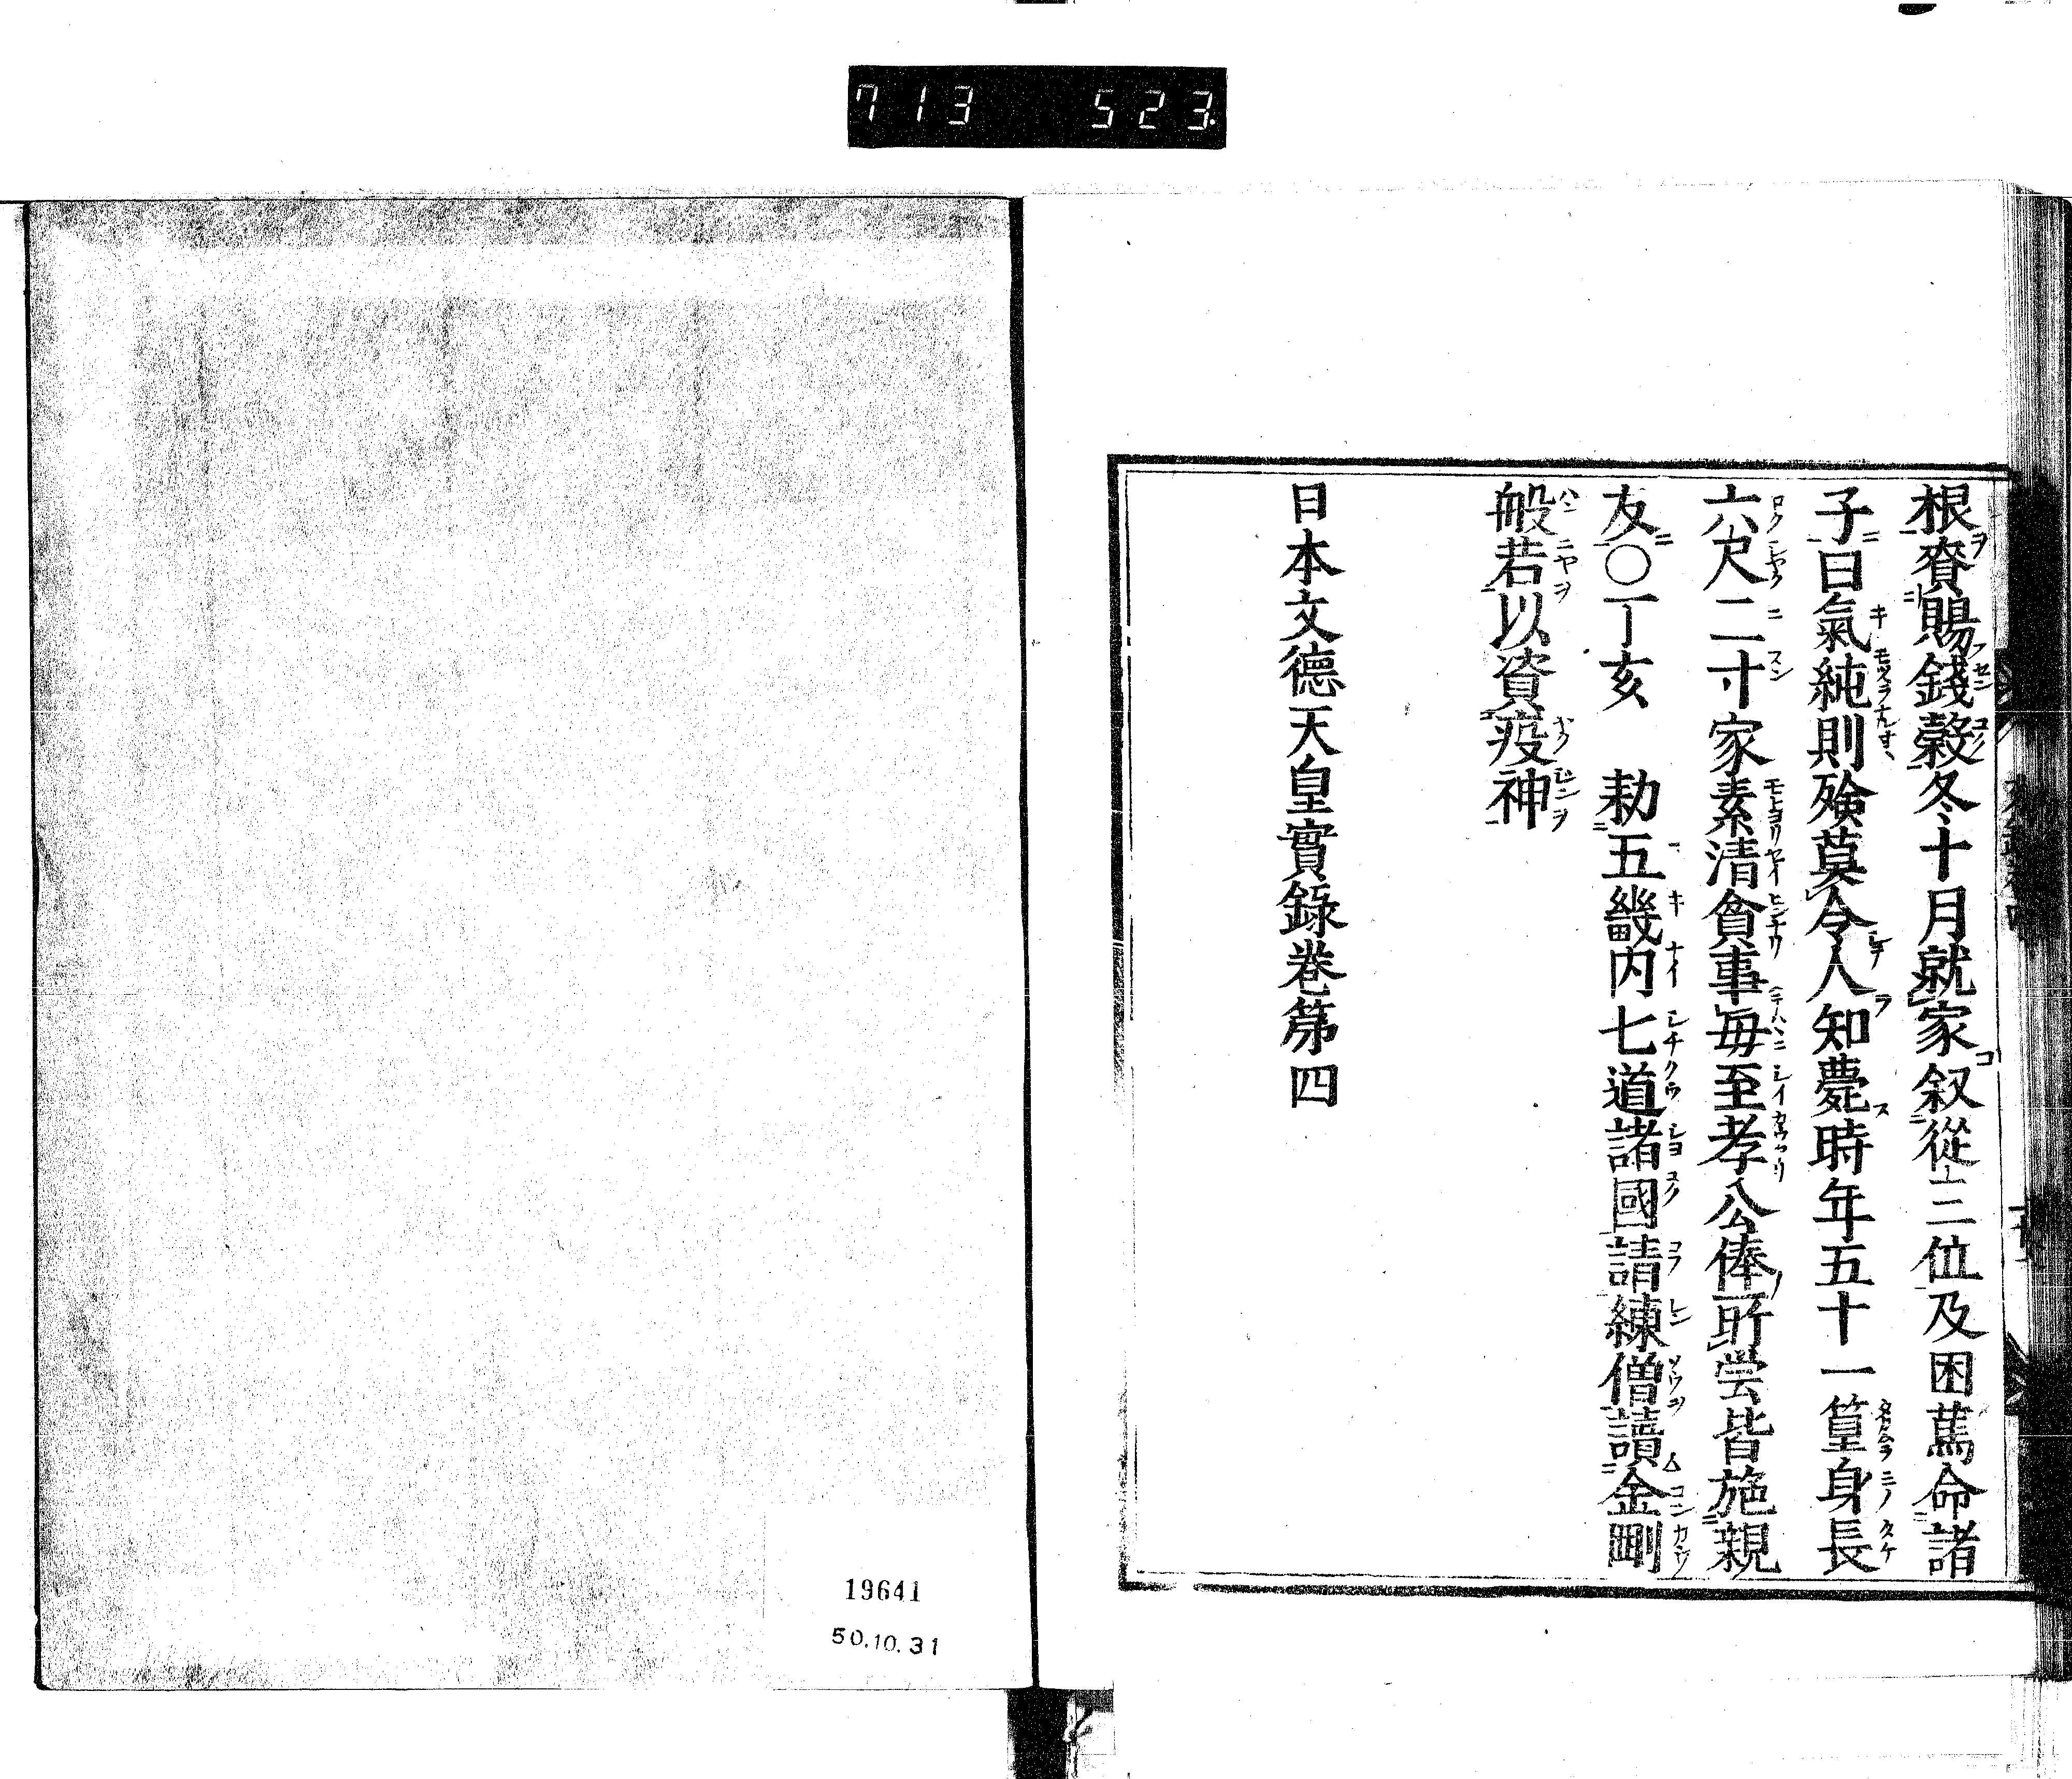 713 523.
根賚賜錢穀冬十月就家叙從三位及困篤命諸
子曰氣純則殮莫令人知薨時年五十一篁身長
六尺二寸家素清貧事毎至孝公俸所當皆施親
友〇丁亥 勅五畿内七道諸國請練僧讀金剛
般若以資疫神
日本文德天皇實錄卷第四
19641
50.10.31